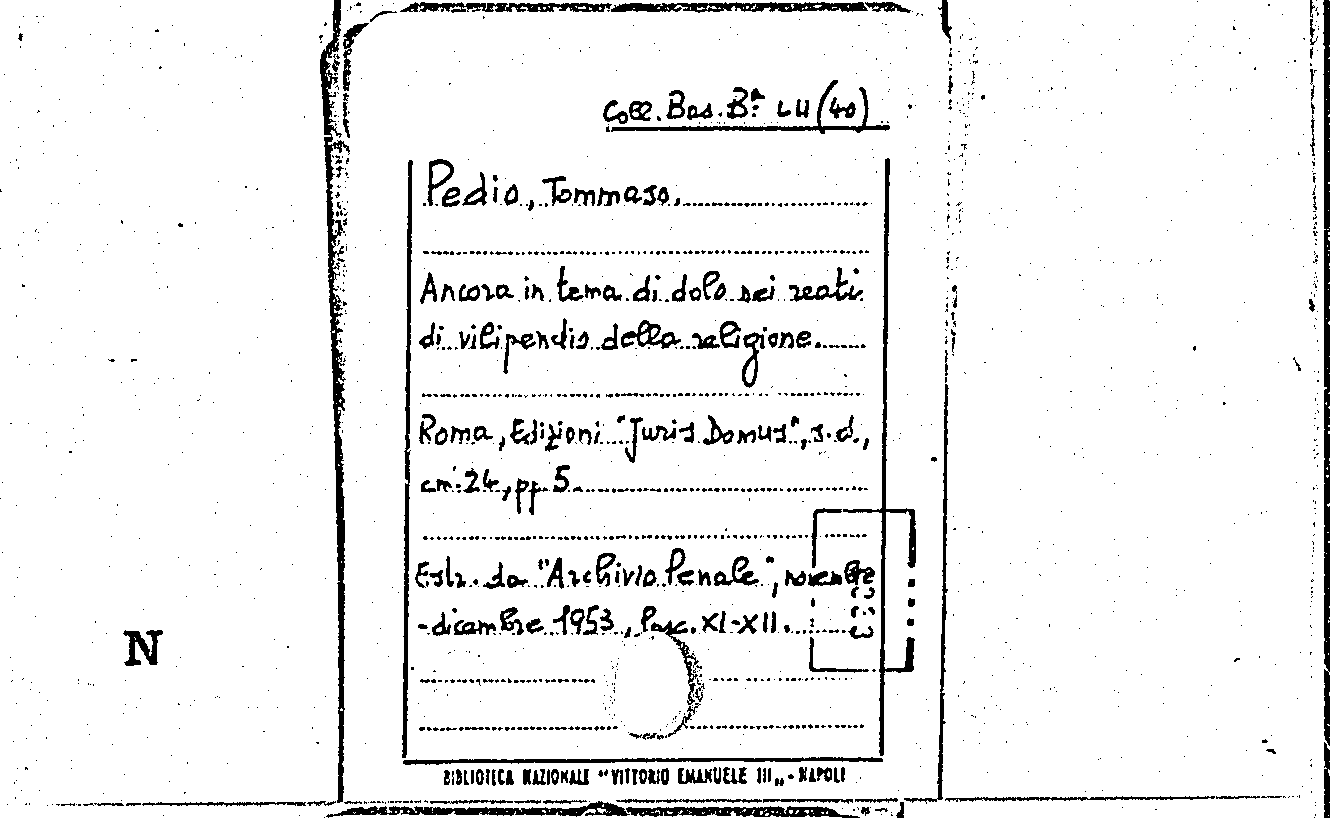 Coll. Bas. Bª. LII (40)
Pedio, Tommaso.
Ancora in tema di dolo nei reati
di vilipendio della religione.
Roma, Edizioni "Juris Domus", s.d.,
cm. 24, pp. 5.
Estr. da "Archivio Penale", novembre
-dicembre 1953, fasc. XI-XII.
N
BIBLIOTECA NAZIONALE "VITTORIO EMANUELE III„ - NAPOLI